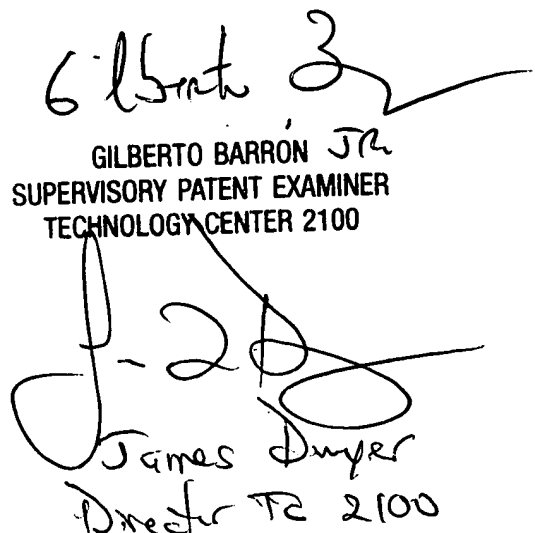 Gilberto B
GILBERTO BARRÓN JR
SUPERVISORY PATENT EXAMINER
TECHNOLOGY CENTER 2100
James Dwyer
Director TC 2100